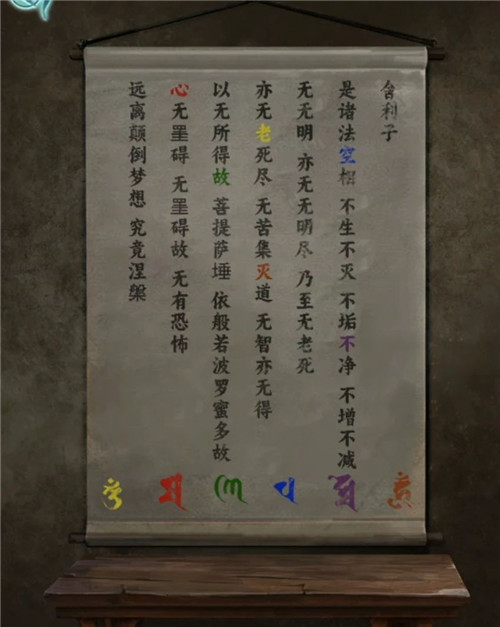 舍利子
是诸法空相 不生不灭 不垢不净 不增不减
无无明 亦无无明尽 乃至无老死
亦无老死尽 无苦集灭道 无智亦无得
以无所得故 菩提萨埵 依般若波罗蜜多故
心无墨碍 无墨碍故 无有恐怖
远离颠倒梦想 究竟涅槃